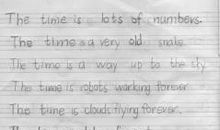 The time is lots of numbers.
The time is a very old snake
The time is a way up to the sky
The time is robots working forever
The time is clouds flying forever.
The